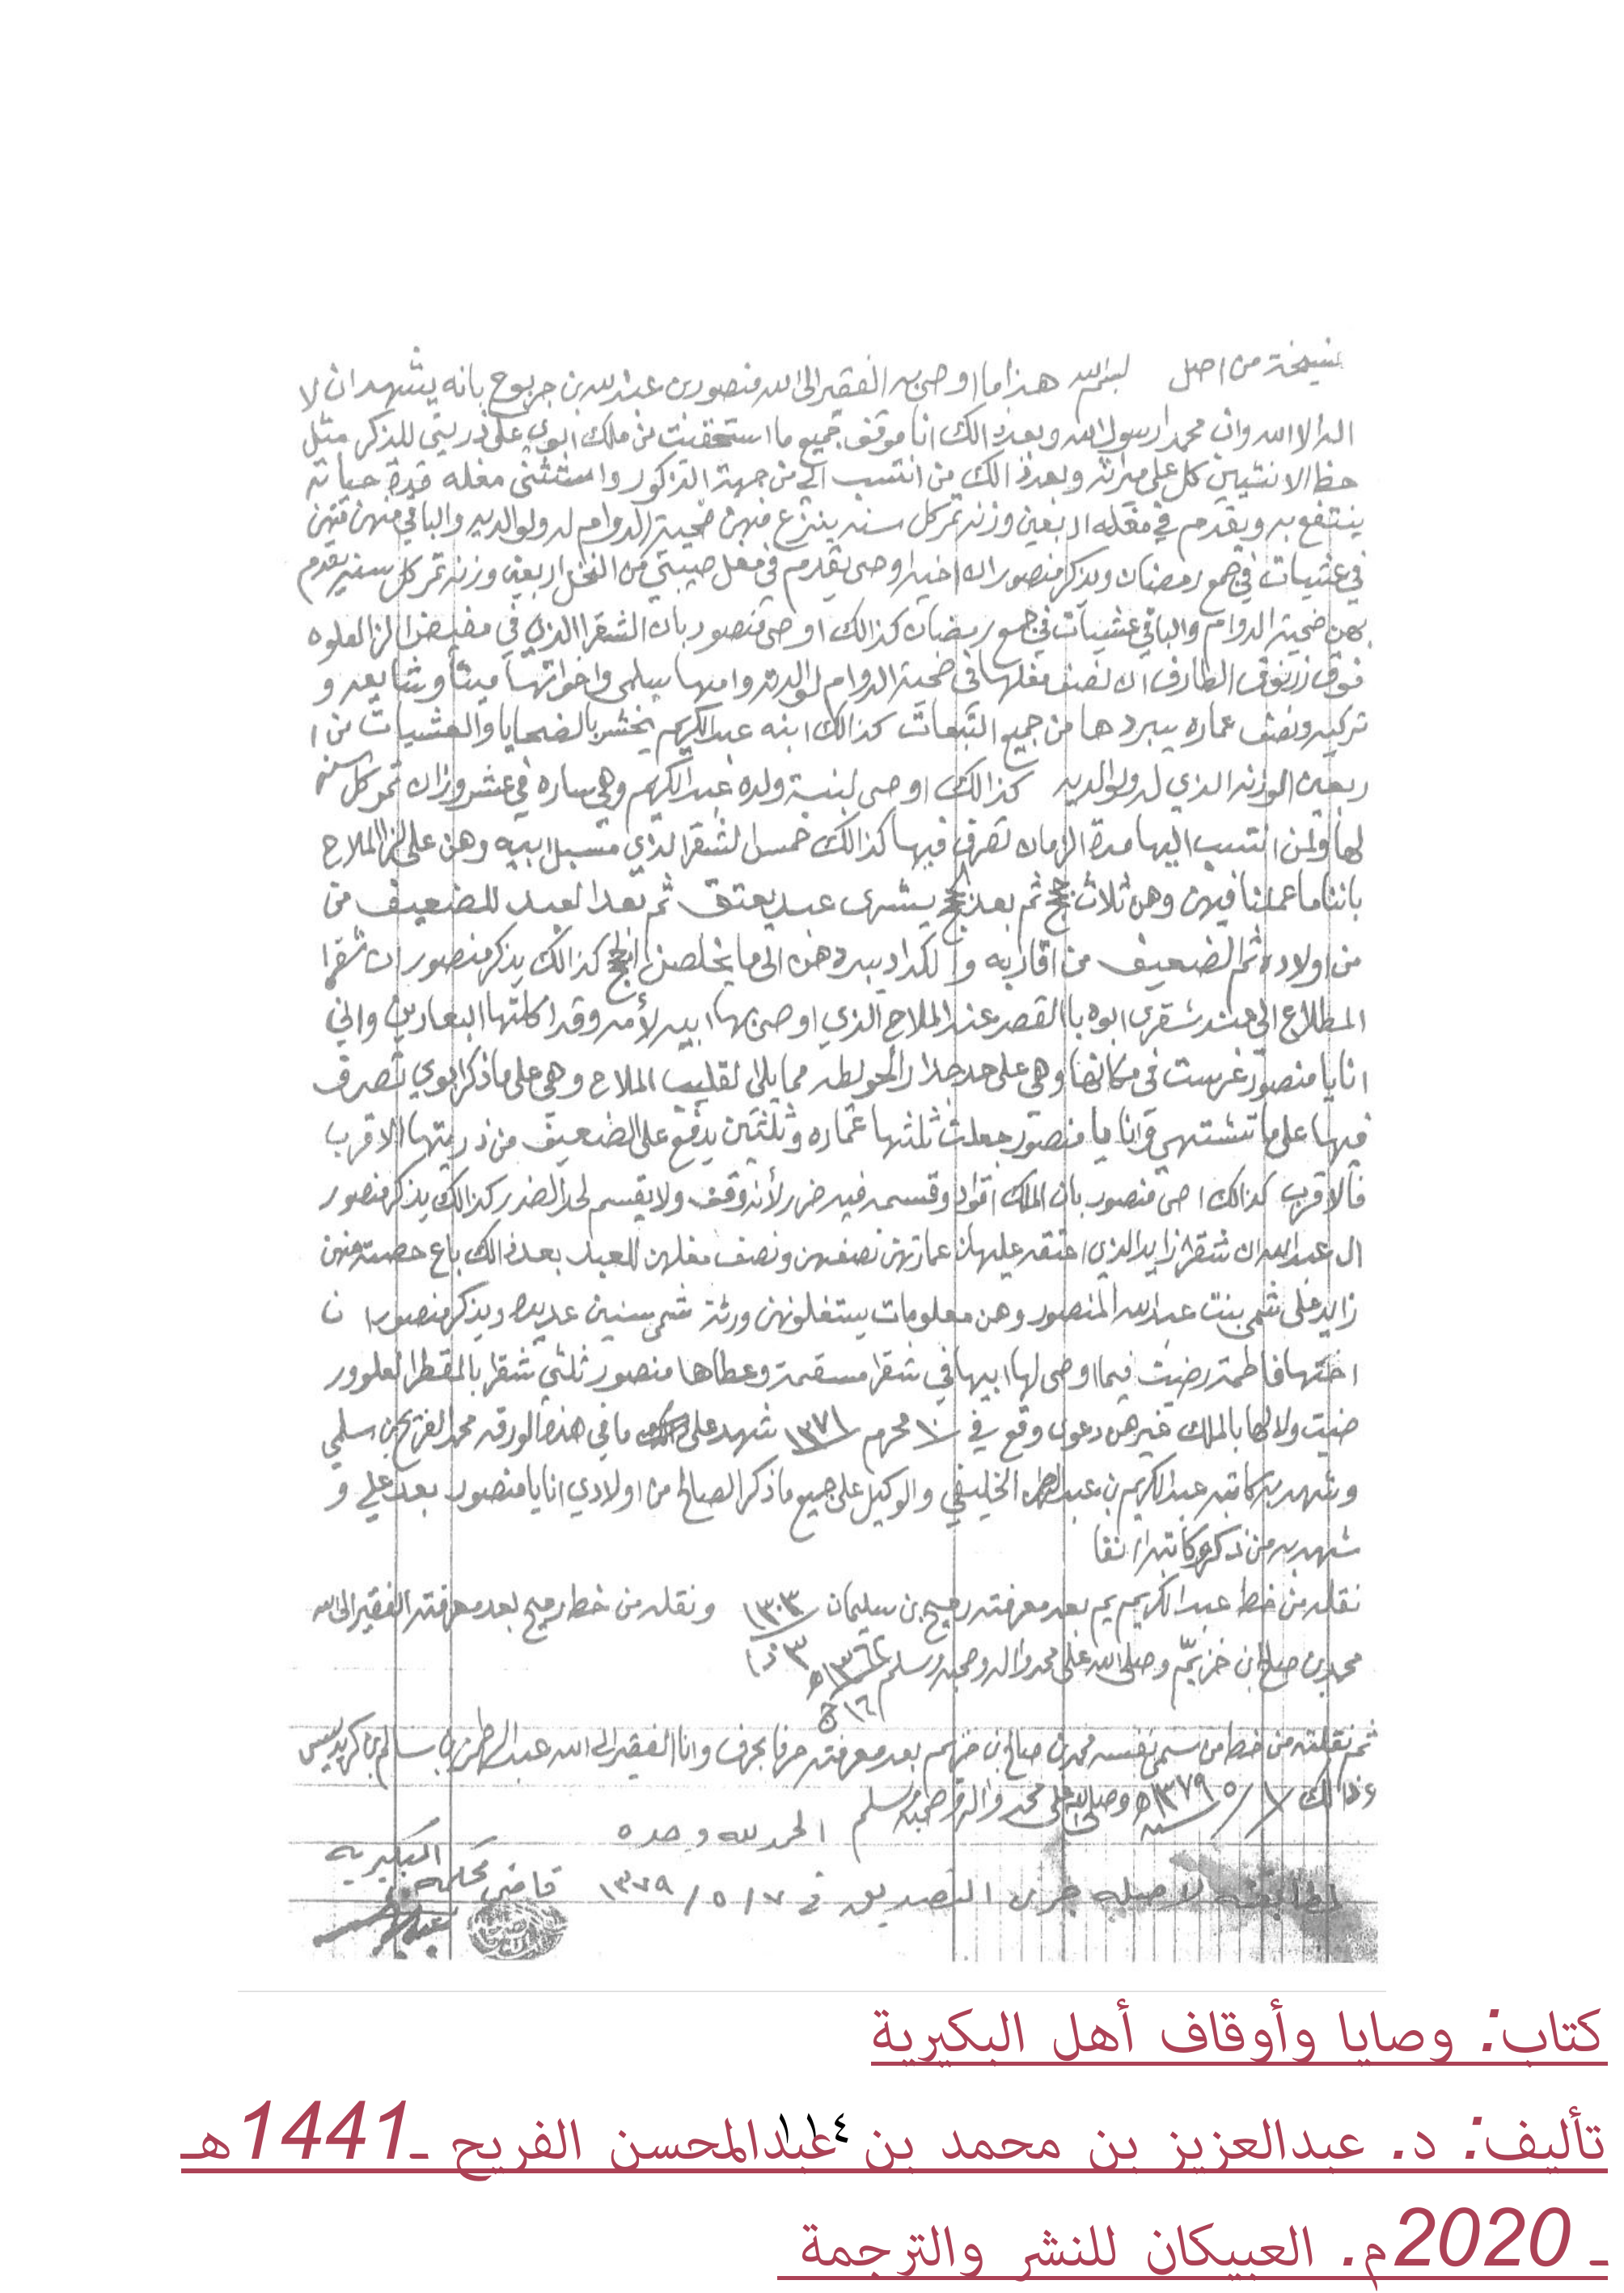 نسخة من اصل بسم الله هذا ما اوصى به الفقير الى الله منصور بن عبدالله بن جربوع بانه يشهد ان لا
اله الا الله وان محمدا رسول الله وبعد ذالك انا موقف جميع ما استحقيت من ملك ابوي على ذريتي للذكر مثل
حظ الانثيين كل على ميراثه وبعد ذالك من انتسب الي من جهة الذكور واستثنى مغله مدة حياته
ينتفع به ويقدم في مغله اربعين وزنه تمر كل سنه ينزع منهن ضحية الدوام له ولوالديه والباقي منهن
في عشيات في جمع رمضان ويذكر منصور ان اخيه اوصى يقدم في مغل صيبتي من النخل اربعين وزنه تمر كل سنه يقدم
بهن ضحية الدوام والباقي عشيات في جمع رمضان كذالك اوصى منصور بان الشقرا الذي في مفيض لزا العلوه
فوق زرنوق الطارف ان نصف مغلها في ضحية الدوام لوالدته وامها سلمى واخواتها ميثا وشايعه و
تركيه ونصف عماره يبردها من جميع التبعات كذالك ابنه عبدالكريم يخشر بالضحايا والعشيات من ا
ربعين الوزنه الذي له ولوالديه كذالك اوصى لبنية ولده عبدالكريم وهي ساره في عشر وزان تمر كل سنه
لها ولمن انتسب اليها مدة الزمان تصرف فيها كذالك خمس الشقر الذي مسبل ابيه وهن على لزا الملاح
باننا ما عملنا فيهن وهن ثلاث حجج ثم بعد حجج يشرى عبد يعتق ثم بعد العبد للضعيف من
من اولاده ثم الضعيف من اقاربه و الكداد يبدهن الى ما يخلصن الحجج كذالك يذكر منصور ان شقرا
المطلاع الي عند شقرى ابوه بالقصر عند الملاح الذي اوصى بها ابيه لأمه وقد اكلتها البعارين واني
انا يا منصور غرست في مكانها وهي على حد جدار الحويطه مما يلي القليب الملاح وهي على ما ذكر ابوي تصرف
فيها على ما تشتهي وانا يا منصور جعلت ثلثها عماره وثلثين يدفع على الضعيف من ذريتها الاقرب
فالاقرب كذالك اصى منصور بان الملك وقسمه فيه ضرر لأنه وقف ولا يقسم لحد الضرر كذالك يذكر منصور
ال عبدالله ان شقر زايد الذي اعتقه عليهن عمارتهن نصفهن ونصف مغلهن للعبد بعد ذالك باع حصته منهن
زايد على شمى بنت عبدالله المنصور وهن معلومات يستغلونهن ورثة شمى سنين عديده ويذكر منصور ان
اختها فاطمة رضيت فيما اوصى لها ابيها في شقرا مسقمة وعطاها منصور ثلثي شقرا بالمقطر العلو ور
ضيت ولا لها بالملك غيرهن دعوى وقع في ١٠ محرم ١٣٧١ شهد على ما في هذه الورقه محمد الفريح بن سلمي
وشهد به كاتبه عبدالكريم بن عبدالله الخليفي والوكيل على جميع ما ذكر الصالح من اولادي انا يا منصور بعد علي و
شهد به من ذكر وكاتبه انفا
نقله من خط عبدالكريم بعد معرفته رميح بن سليمان ١٣٠٣ ونقله من خط رميح بعد معرفته الفقير الى الله
محمد بن صالح بن خزيم وصلى الله على محمد واله وصحبه وسلم
ثم نقلته من خط من سمى نفسه محمد بن صالح بن خزيم بعد معرفته حرفا بحرف وانا الفقير الى الله عبدالرحمن بن سالم بن كريديس
وذالك ١ / ٥ / ١٣٧٩ه وصلى الله على محمد واله وصحبه وسلم
الحمد لله وحده
لمطابقته لاصله جرى التصديق في ٧ / ٥ / ١٣٧٩ قاضي محكمة البكيرية
كتاب: وصايا وأوقاف أهل البكيرية
تأليف: د. عبدالعزيز بن محمد بن عبدالمحسن الفريح ـ1441هـ
١١٤
ـ 2020م. العبيكان للنشر والترجمة